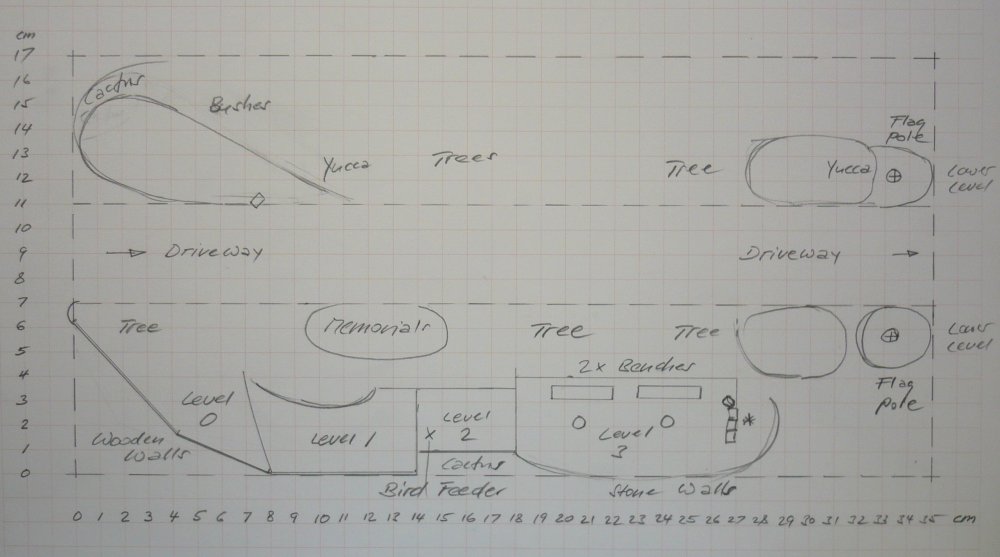 cm
17
16
Cactus
15
Bushes
14
Flag
pole
13
Yucca
Trees
Tree
Yucca
12
Lower
Level
11
10
9
→ Driveway
Driveway →
8
7
6
Tree
Memorials
Tree
Tree
Lower
Level
5
4
2x Benches
Flag
pole
3
Level
0
Level
2
2
Wooden
Walls
Level 1
x
Level
3
*
1
Cactus
0
Bird Feeder
Stone Walls
0 1 2 3 4 5 6 7 8 9 10 11 12 13 14 15 16 17 18 19 20 21 22 23 24 25 26 27 28 29 30 31 32 33 34 35 cm